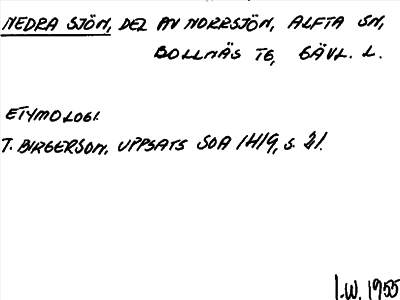 NEDRA SJÖN, DEL AV NORRSJÖN, ALFTA SN,
BOLLNÄS TG, GÄVL. L.
ETYMOLOGI.
T. BIRGERSON, UPPSATS SOA 1419, s. 21.
I.W. 1955